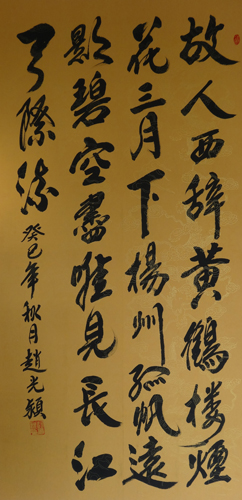 故人西辞黄鶴樓煙
花三月下楊州孤帆遠
影碧空盡唯見長江
天際流
癸巳年秋月趙光